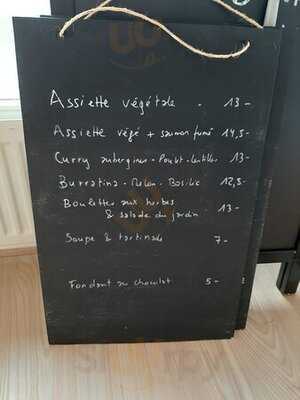 Assiette végétale . 13-
Assiette végé + saumon fumé 14,5-
Curry aubergines - Poulet - Lentilles 13-
Burratina - Melon - Basilic 12,5-
Boulettes aux herbes
& salade du jardin 13-
Soupe & tartinade 7-
Fondant au chocolat 5-